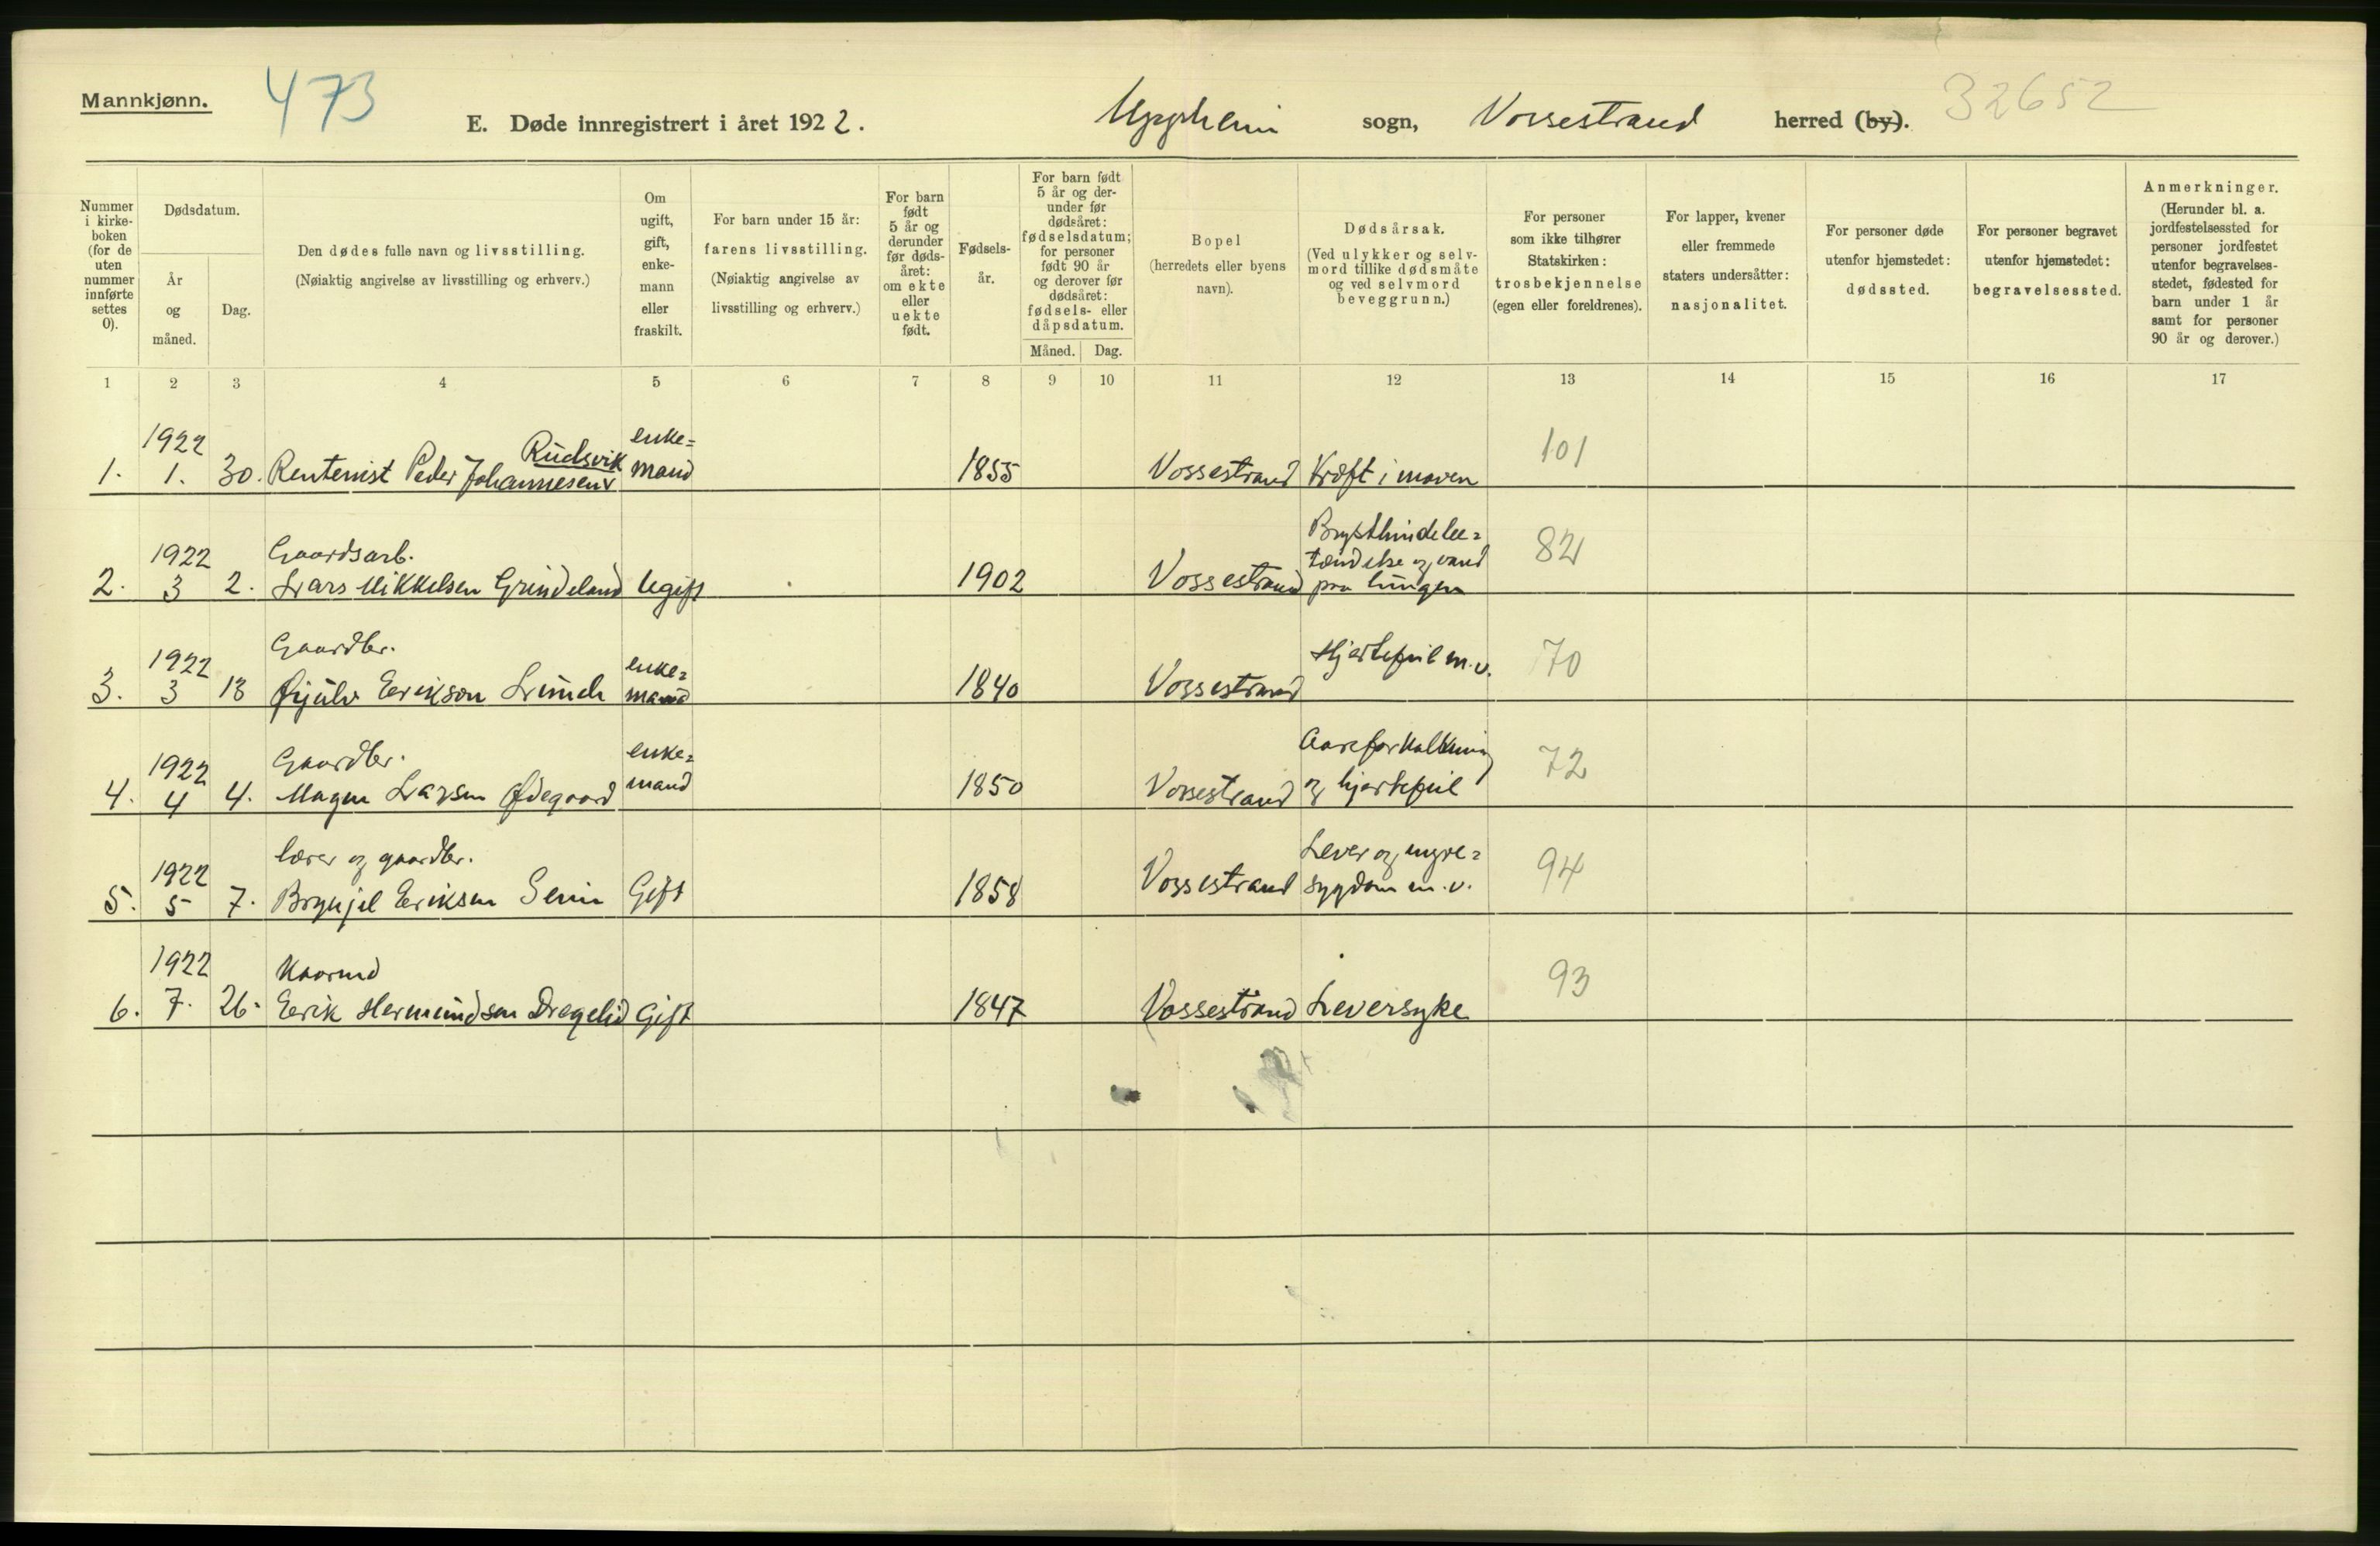 Mannkjønn.
473
E. Døde innregistrert i året 1922.
Uppheim sogn, Vossestrand herred (by).
32652
Nummer i kirke-boken (for de uten nummer innførte settes 0).
Dødsdatum.
År og måned.
Dag.
Den dødes fulle navn og livsstilling.
(Nøiaktig angivelse av livsstilling og erhverv.)
Om ugift, gift, enke-mann eller fraskilt.
For barn under 15 år:
farens livsstilling.
(Nøiaktig angivelse av livsstilling og erhverv.)
For barn født 5 år og derunder før døds-året: om ekte eller uekte født.
Fødsels-år.
For barn født 5 år og der-under før dødsåret: fødselsdatum; for personer født 90 år og derover før dødsåret: fødsels- eller dåpsdatum.
Måned.
Dag.
Bopel
(herredets eller byens navn).
Dødsårsak.
(Ved ulykker og selv-mord tillike dødsmåte og ved selvmord beveggrunn.)
For personer som ikke tilhører Statskirken: trosbekjennelse (egen eller foreldrenes).
For lapper, kvener eller fremmede staters undersåtter: nasjonalitet.
For personer døde utenfor hjemstedet: dødssted.
For personer begravet utenfor hjemstedet: begravelsessted.
Anmerkninger.
(Herunder bl. a. jordfestelsessted for personer jordfestet utenfor begravelses-stedet, fødested for barn under 1 år samt for personer 90 år og derover.)
1 2 3 4 5 6 7 8 9 10 11 12 13 14 15 16 17
1922 Rudsvik enke=
1. 1. 30. Rentenist Peder Johannesen mand 1855 Vossestrand Kræft i maven 101
1922 Gaardsarb. Brysthindebe=
tændelse og vand 82
2. 3 2. Lars Mikkelsen Grindeland Ugift 1902 Vossestrand paa lungen
1922 Gaardbr. enke= Hjertefeil m.v. 70
3. 3 13 Eirikson mand 1840 Vossestrand
1922 Gaardbr. enke= Aareforkalkning 72
4. 4 4. Magne Larsen Ødegaard mand 1850 Vossestrand og hjertefeil
1922 lærer og gaardbr. Lever og nyre= 94
5. 5 7. Brynjel Eriksen Gift 1858 Vossestrand sygdom m.v.
1922 Kaarmd 93
6. 7. 26. Eirik Hermundsen Dregelid Gift 1847 Vossestrand Leversyke